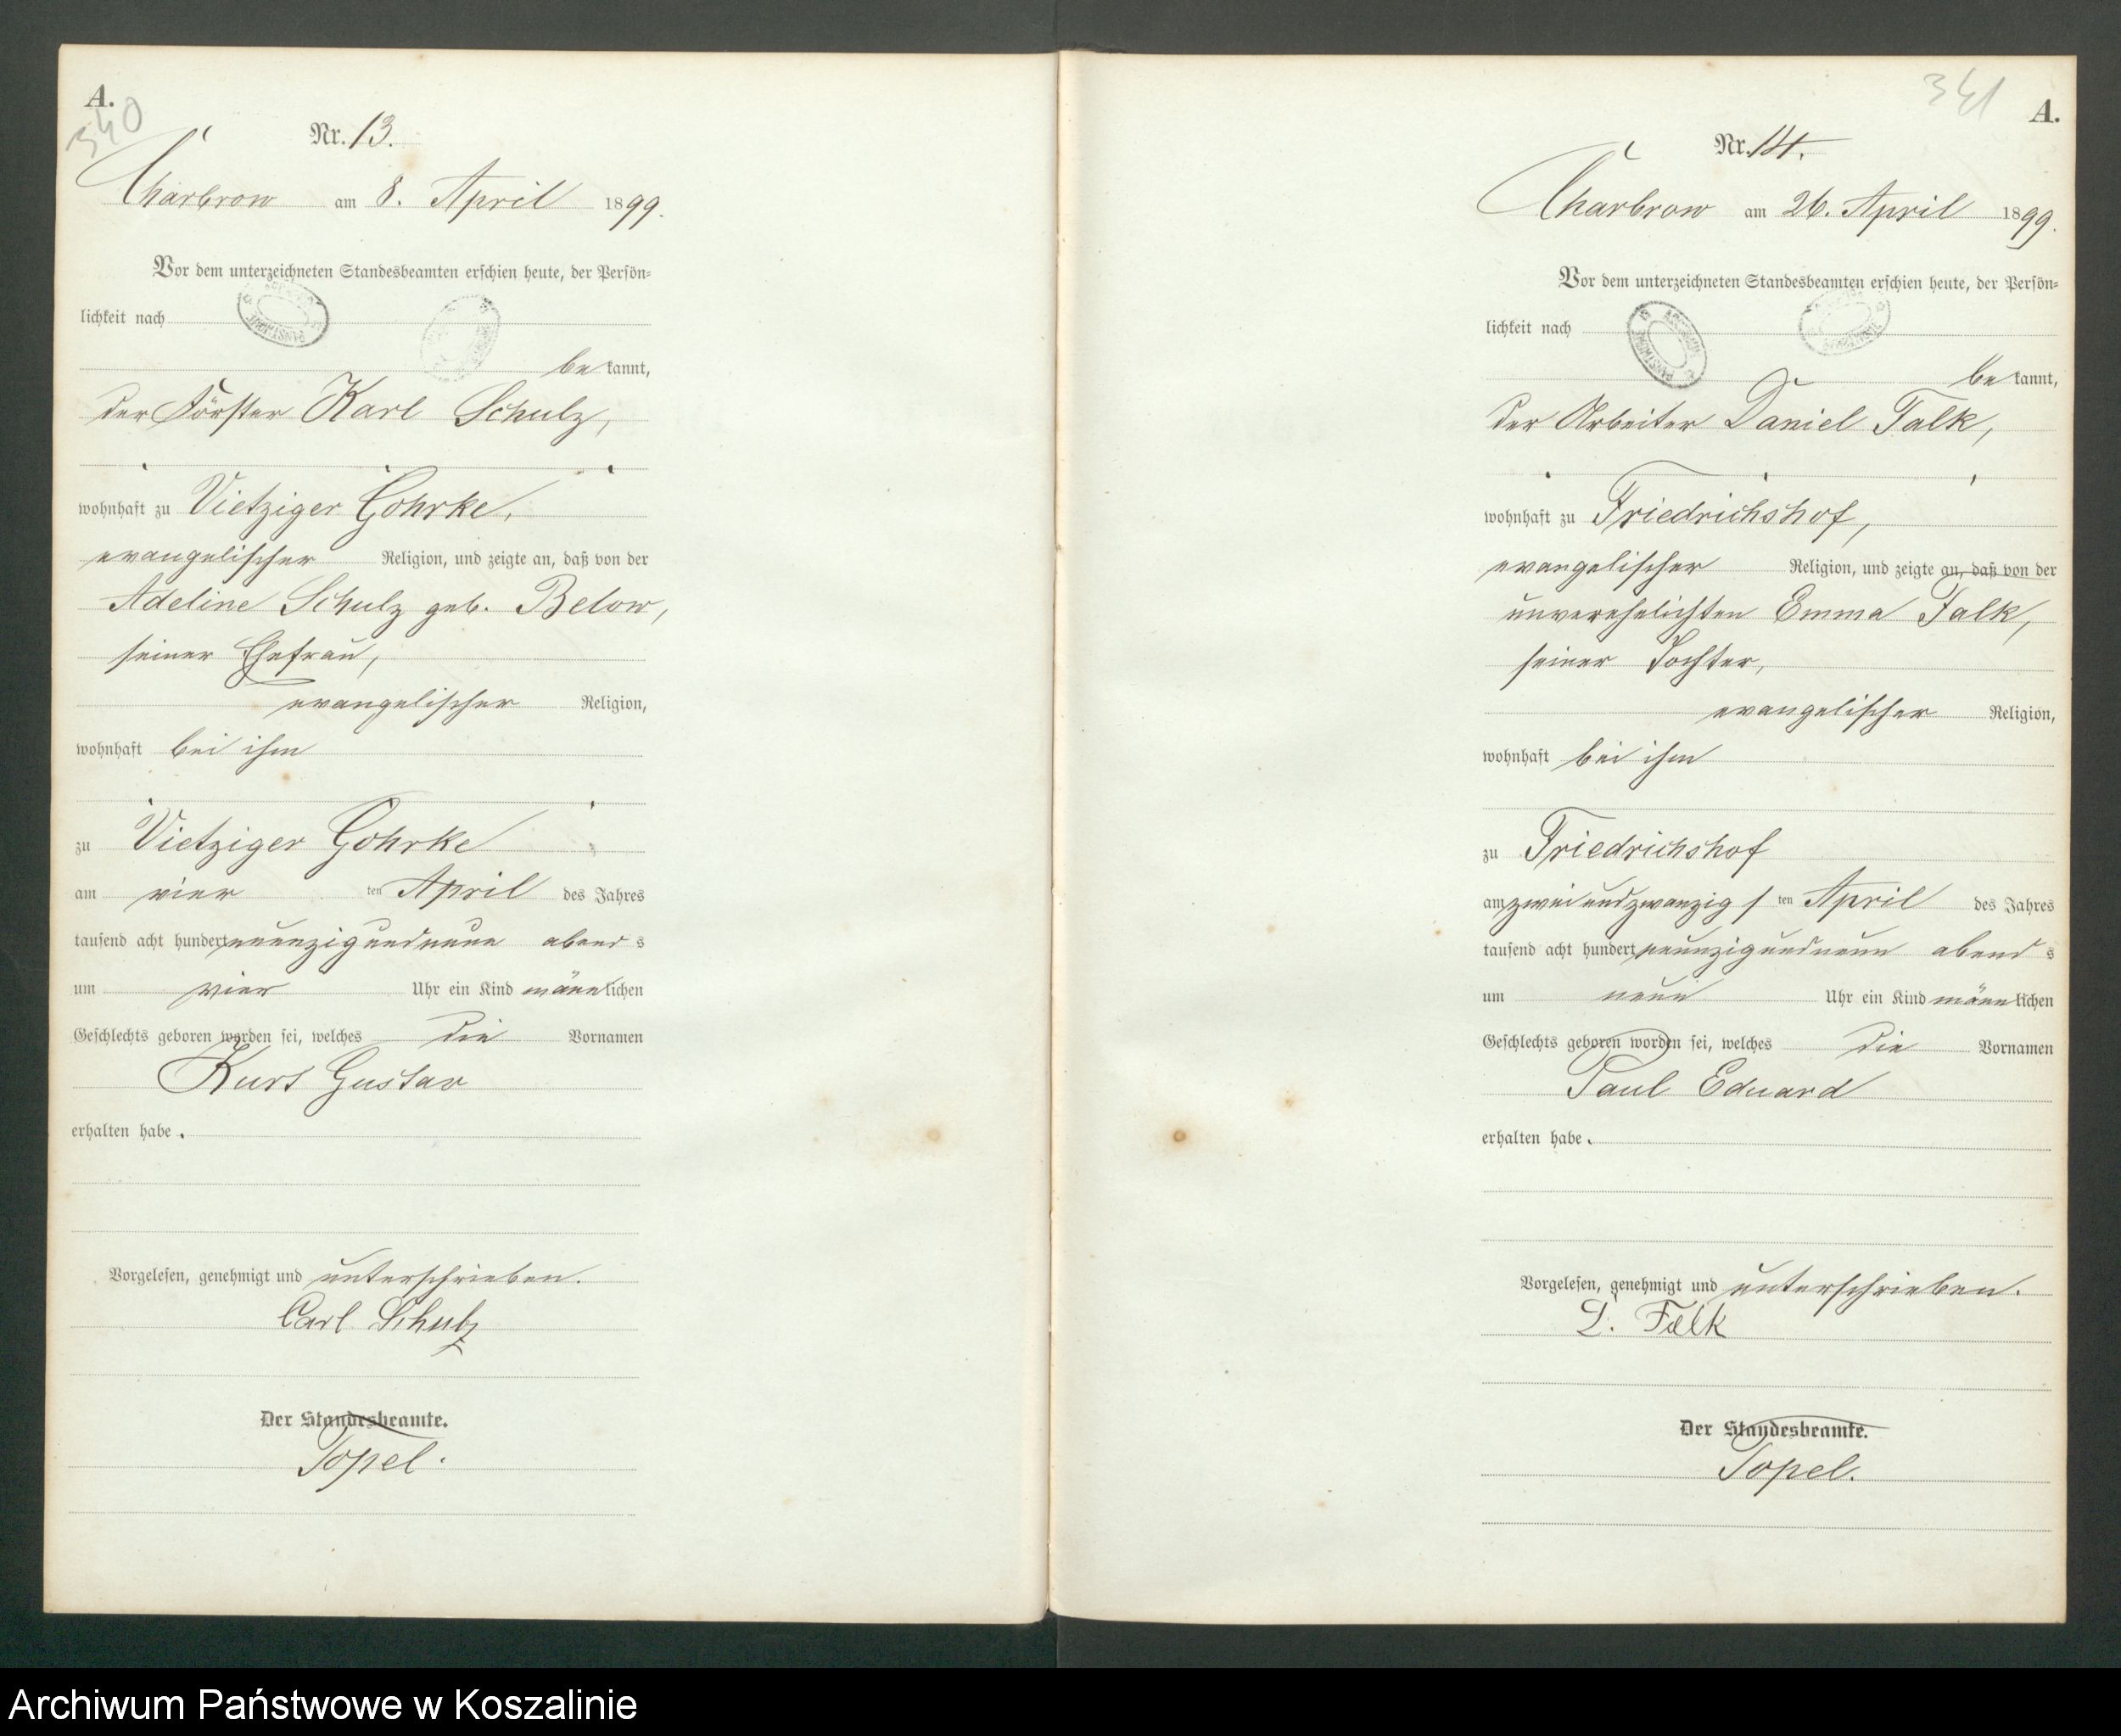 A.
340
Nr. 13.
Charbrow am 8. April 1899.
Vor dem unterzeichneten Standesbeamten erschien heute, der Persön-
lichkeit nach
be kannt,
der Förster Karl Schulz,
wohnhaft zu Vietziger Gohrke,
evangelischer Religion, und zeigte an, daß von der
Adeline Schulz geb. Below,
seiner Ehefrau,
evangelischer Religion,
wohnhaft bei ihm
zu Vietziger Gohrke
am vier ten April des Jahres
tausend acht hundert neunzig und neun abend s
um vier Uhr ein Kind männ lichen
Geschlechts geboren worden sei, welches die Vornamen
Kurt Gustav
erhalten habe.
Vorgelesen, genehmigt und unterschrieben.
Carl Schulz
Der Standesbeamte.
Topel.
341
A.
Nr. 14.
Charbrow am 26. April 1899.
Vor dem unterzeichneten Standesbeamten erschien heute, der Persön-
lichkeit nach
be kannt,
der Arbeiter Daniel Falk,
wohnhaft zu Friedrichshof,
evangelischer Religion, und zeigte an, daß von der
unverehelichten Emma Falk,
seiner Tochter,
evangelischer Religion,
wohnhaft bei ihm
zu Friedrichshof
am zwei und zwanzig / ten April des Jahres
tausend acht hundert neunzig und neun abend s
um neun Uhr ein Kind männ lichen
Geschlechts geboren worden sei, welches die Vornamen
Paul Eduard
erhalten habe.
Vorgelesen, genehmigt und unterschrieben.
D. Falk
Der Standesbeamte.
Topel.
Archiwum Państwowe w Koszalinie